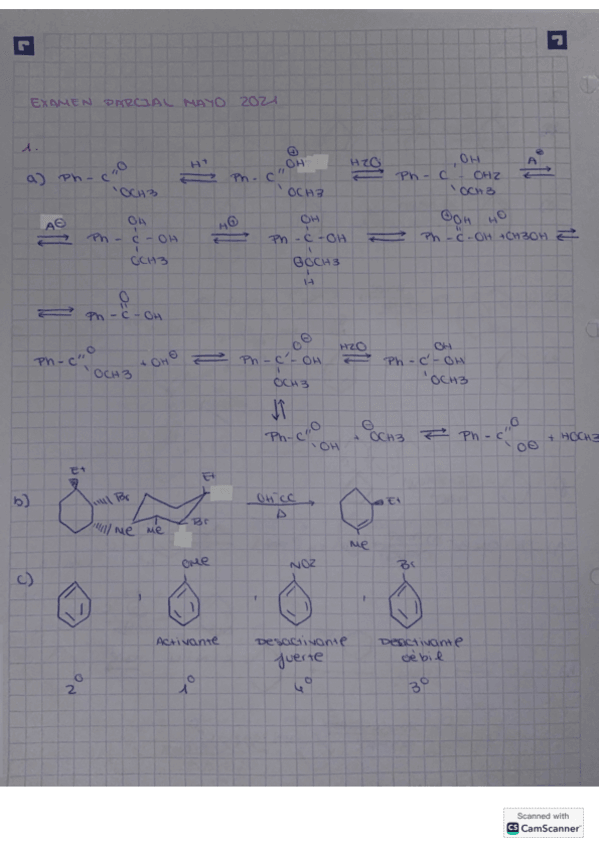 EXAMEN PARCIAL MAYO 2021
1.
a) Ph - C O OCH3 H+ Ph - C ⊕ OH OCH3 H2O Ph - C OH OH2 OCH3 A⊖
A⊖ Ph - C - OH OH OCH3 H⊕ Ph - C - OH OH ⊕OCH3 H ⊕OH H⊖ Ph - C - OH + CH3OH
Ph - C - OH O
Ph - C O OCH3 + OH⊖ Ph - C - OH O⊖ OCH3 H2O Ph - C - OH OH OCH3
Ph - C O OH + ⊖OCH3 Ph - C O O⊖ + HOCH3
b) Et Br Me Et Me Br OH⁻CC Δ Et Me
c) , OMe , NO2 , Br
Activante Desactivante fuerte Deactivante débil
2º 1º 4º 3º
Scanned with
CS CamScanner